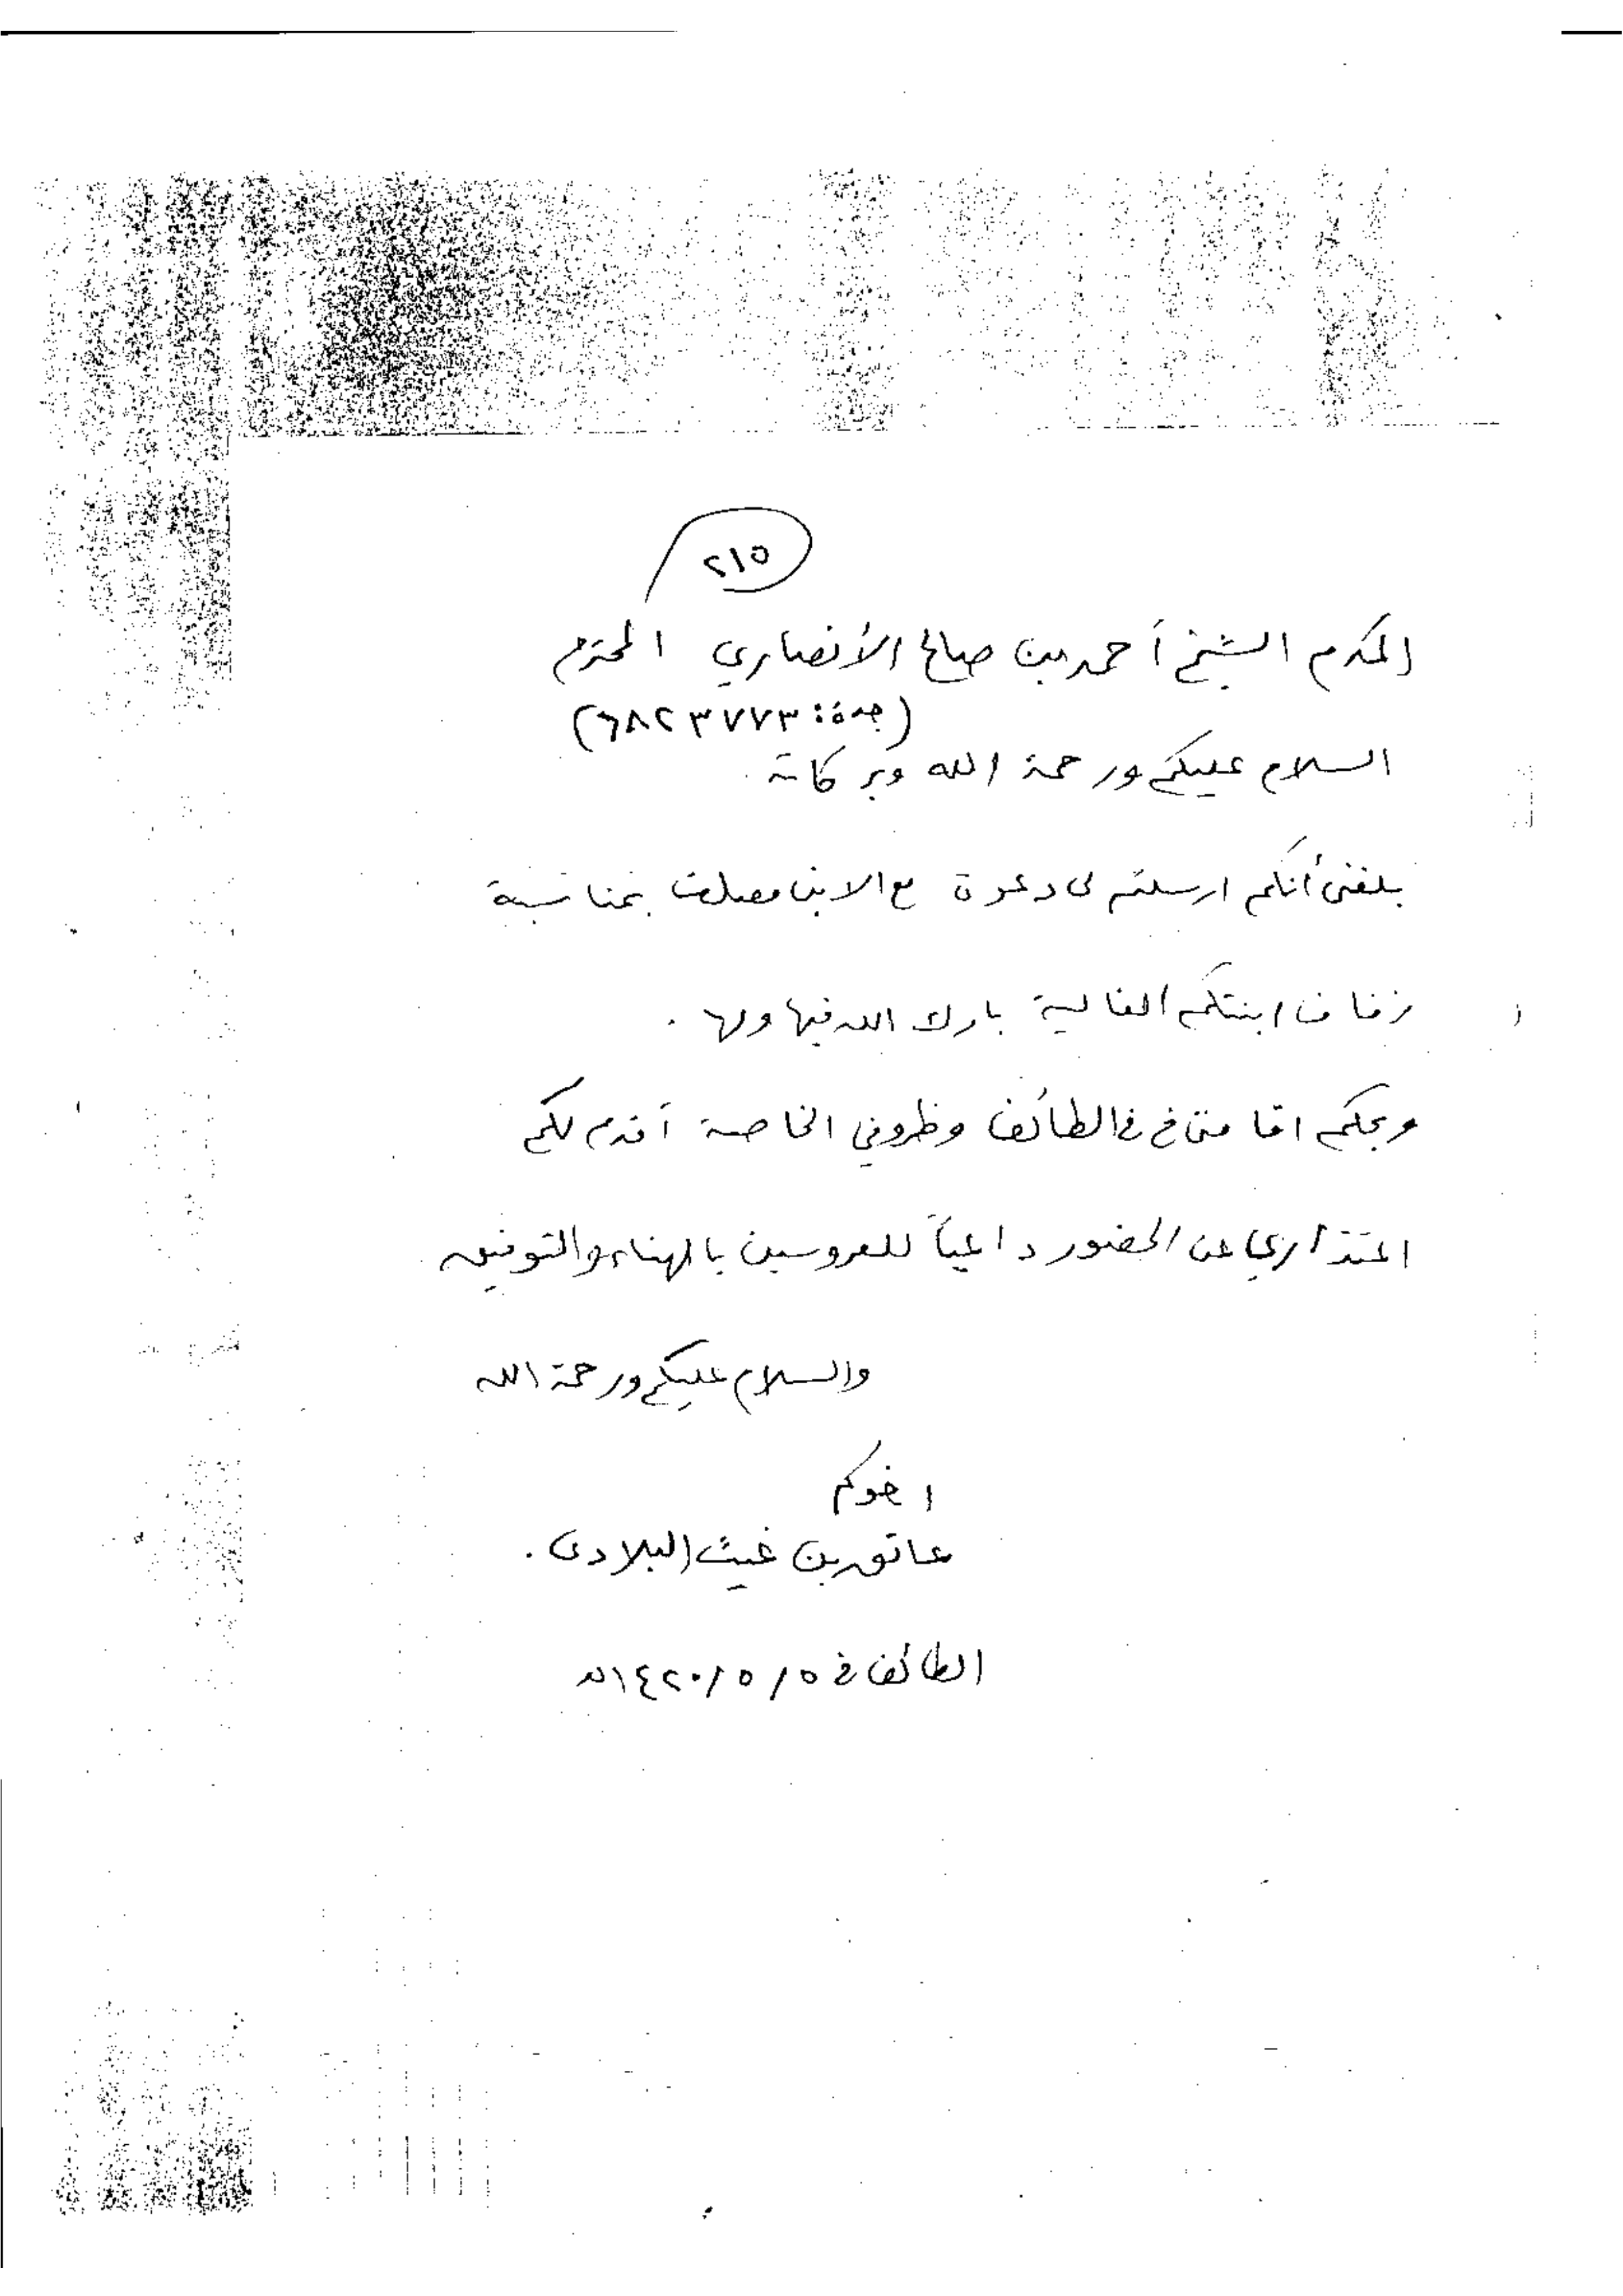 ٢١٥
المكرم الشيخ أحمد بن صالح الأنصاري المحترم
(جدة: ٦٨٢٣٧٧٣)
السلام عليكم ورحمة الله وبركاته
بلغني أنكم ارسلتم لي دعوة مع الابن مصلت بمناسبة
زفاف ابنتكم الغالية بارك الله فيها ولها .
وبحكم اقامتي في الطائف وظروفي الخاصة أقدم لكم
اعتذاري عن الحضور داعياً للعروسين بالهناء والتوفيق
والسلام عليكم ورحمة الله
اخوكم
عاتق بن غيث البلادي .
الطائف في ٥/٥/١٤٢٠هـ